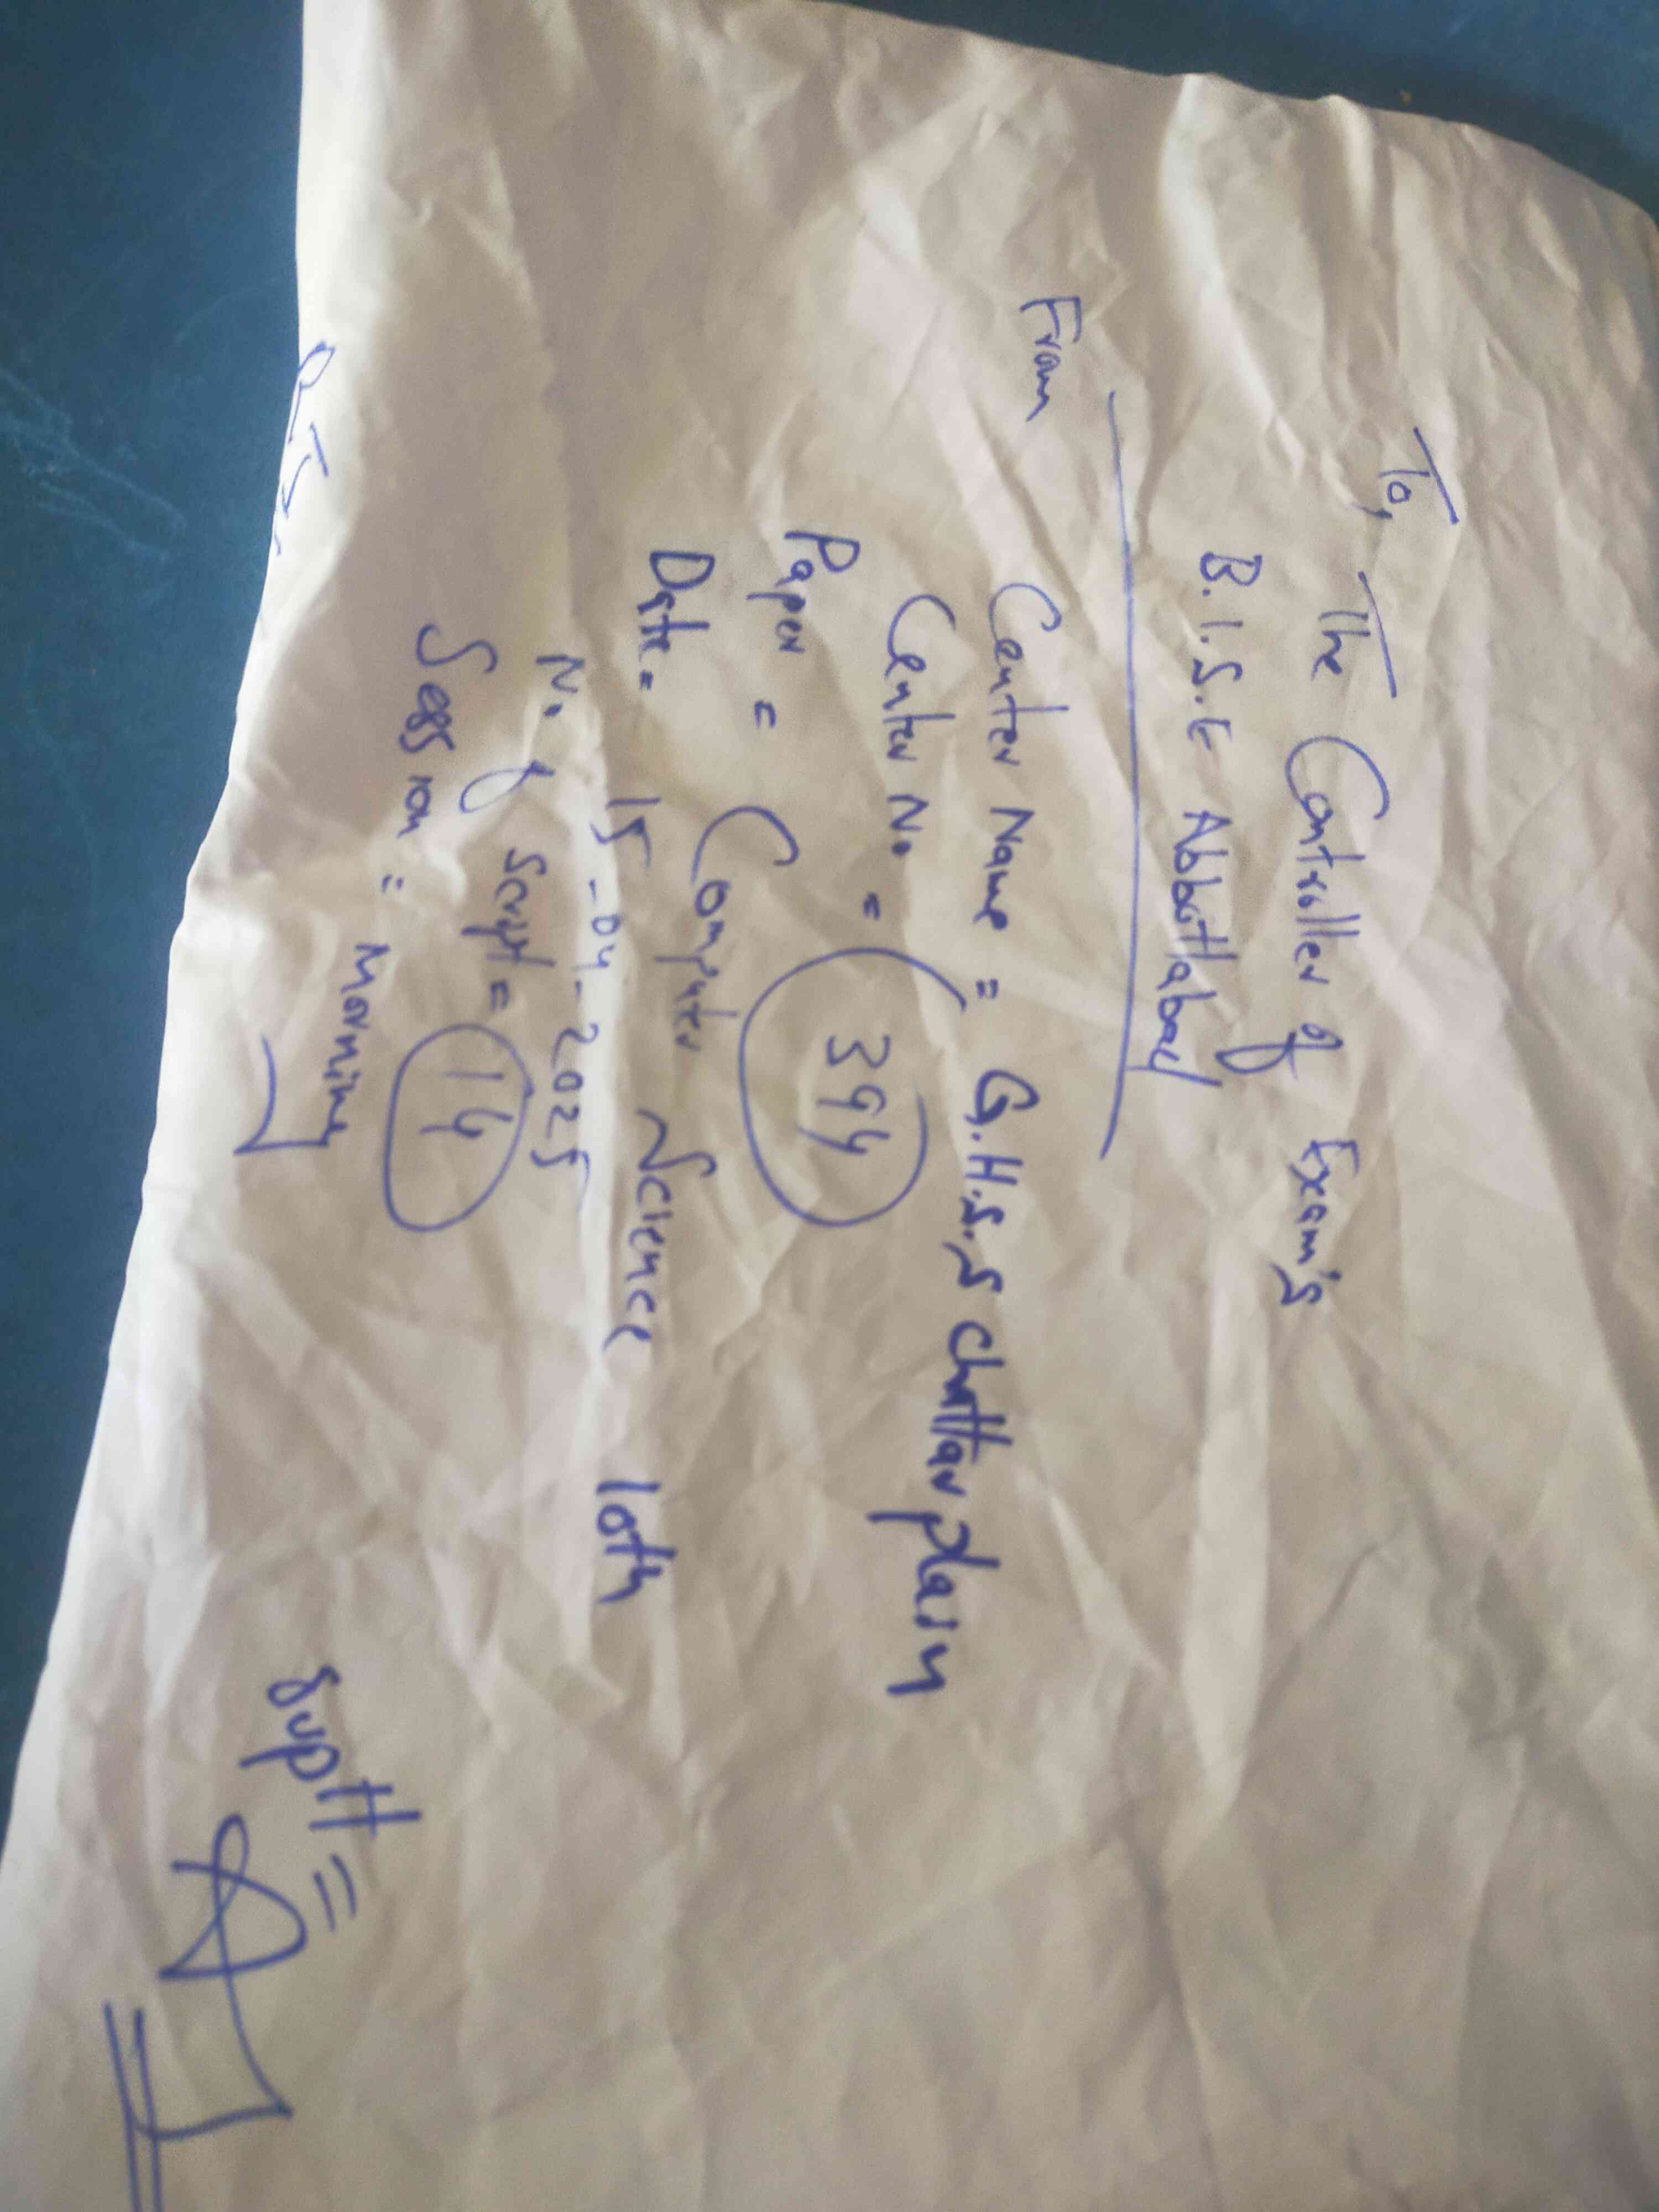 To,
The Controller of Exam's
B.I.S.E Abbottabad
From
Center Name = G.H.S.S chattar plain
Center No = 394
Paper = Computer Science 10th
Date = 15-04-2025
No of Script = 14
Session = Morning
Supdtt =